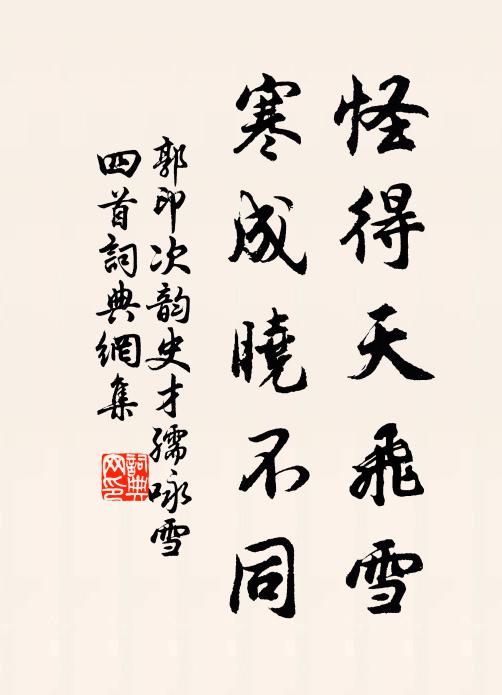 怪得天飛雪
寒成曉不同
郭印次韵史才孺咏雪
四首詞典網集
詞典
网印